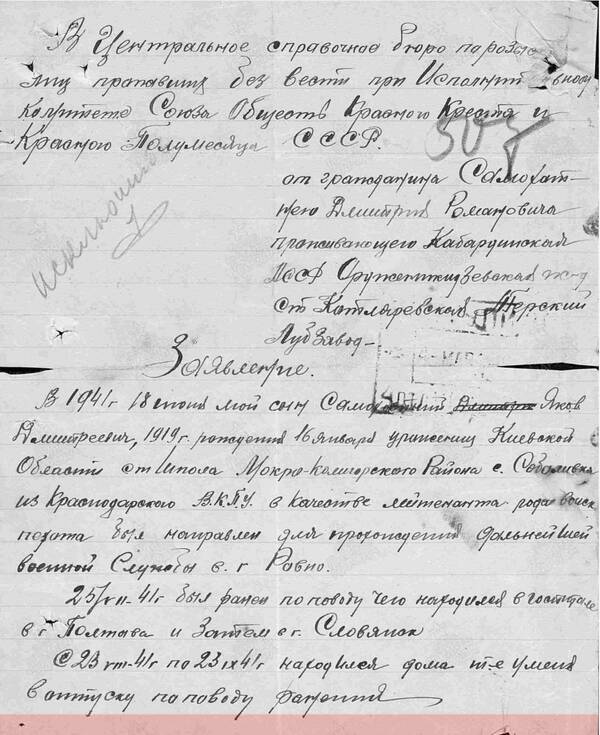 В Центральное справочное бюро по розыс
лиц пропавших без вести при Исполнит
комитете Союза Обществ Красного Креста и
Красного Полумесяца СССР.
от гражданина
Дмитрия Романовича
проживающего Кабардинская
АССР Орджоникидзевская ж-д
ст Котляревская Терский
Луб Завод-
Заявление.
В 1941г 18 июня мой сын Яков
Дмитреевич, 1919г. рождения 16 января уроженец Киевской
Области ст Шпола Района с.
из Краснодарского В.К.П.У. в качестве лейтенанта рода войск
пехота был направлен для прохождения дальнейшей
военной Службы в. г Ровно.
41г был ранен по поводу чего находился в госпитале
в г Полтава и Затем в г. Словянск
С 23 41г по 23 41г находился дома т-е у меня
в отпуску по поводу ранения